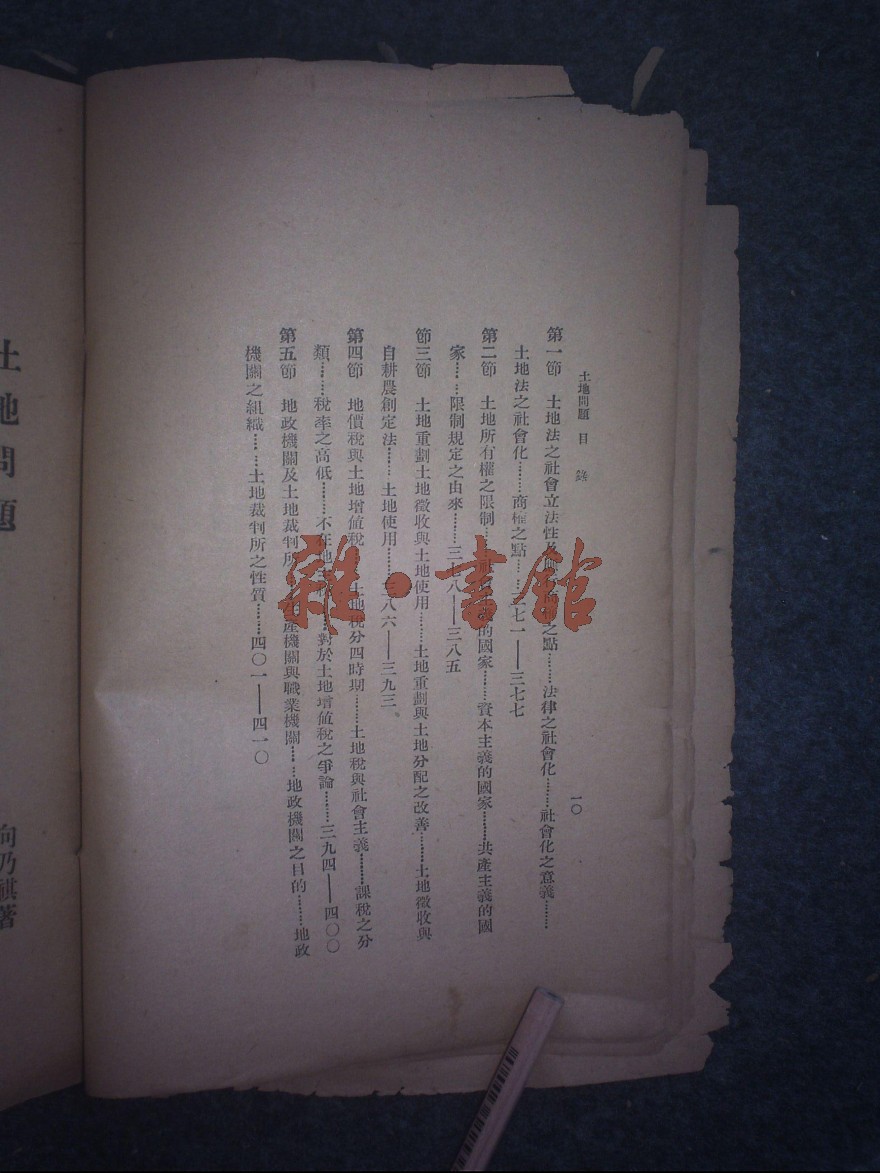 土地問題 目錄
一〇
第一節 土地法之社會立法性及 之點……法律之社會化……社會化之意義……
土地法之社會化……商榷之點……三七一——三七七
第二節 土地所有權之限制……社 的國家……資本主義的國家……共產主義的國
家……限制規定之由來……三七八——三八五
節三節 土地重劃土地徵收與土地使用……土地重劃與土地分配之改善……土地徵收與
自耕農創定法……土地使用……三八六——三九三
第四節 地價稅與土地增值稅 土地稅分四時期……土地稅與社會主義……課稅之分
類……稅率之高低……不在地主 ……對於土地增値稅之爭論……三九四——四〇〇
第五節 地政機關及土地裁判所 生產機關與職業機關……地政機關之目的……地政
機關之組織……土地裁判所之性質……四〇一——四一〇
土地問題
向乃祺著
雜·書館